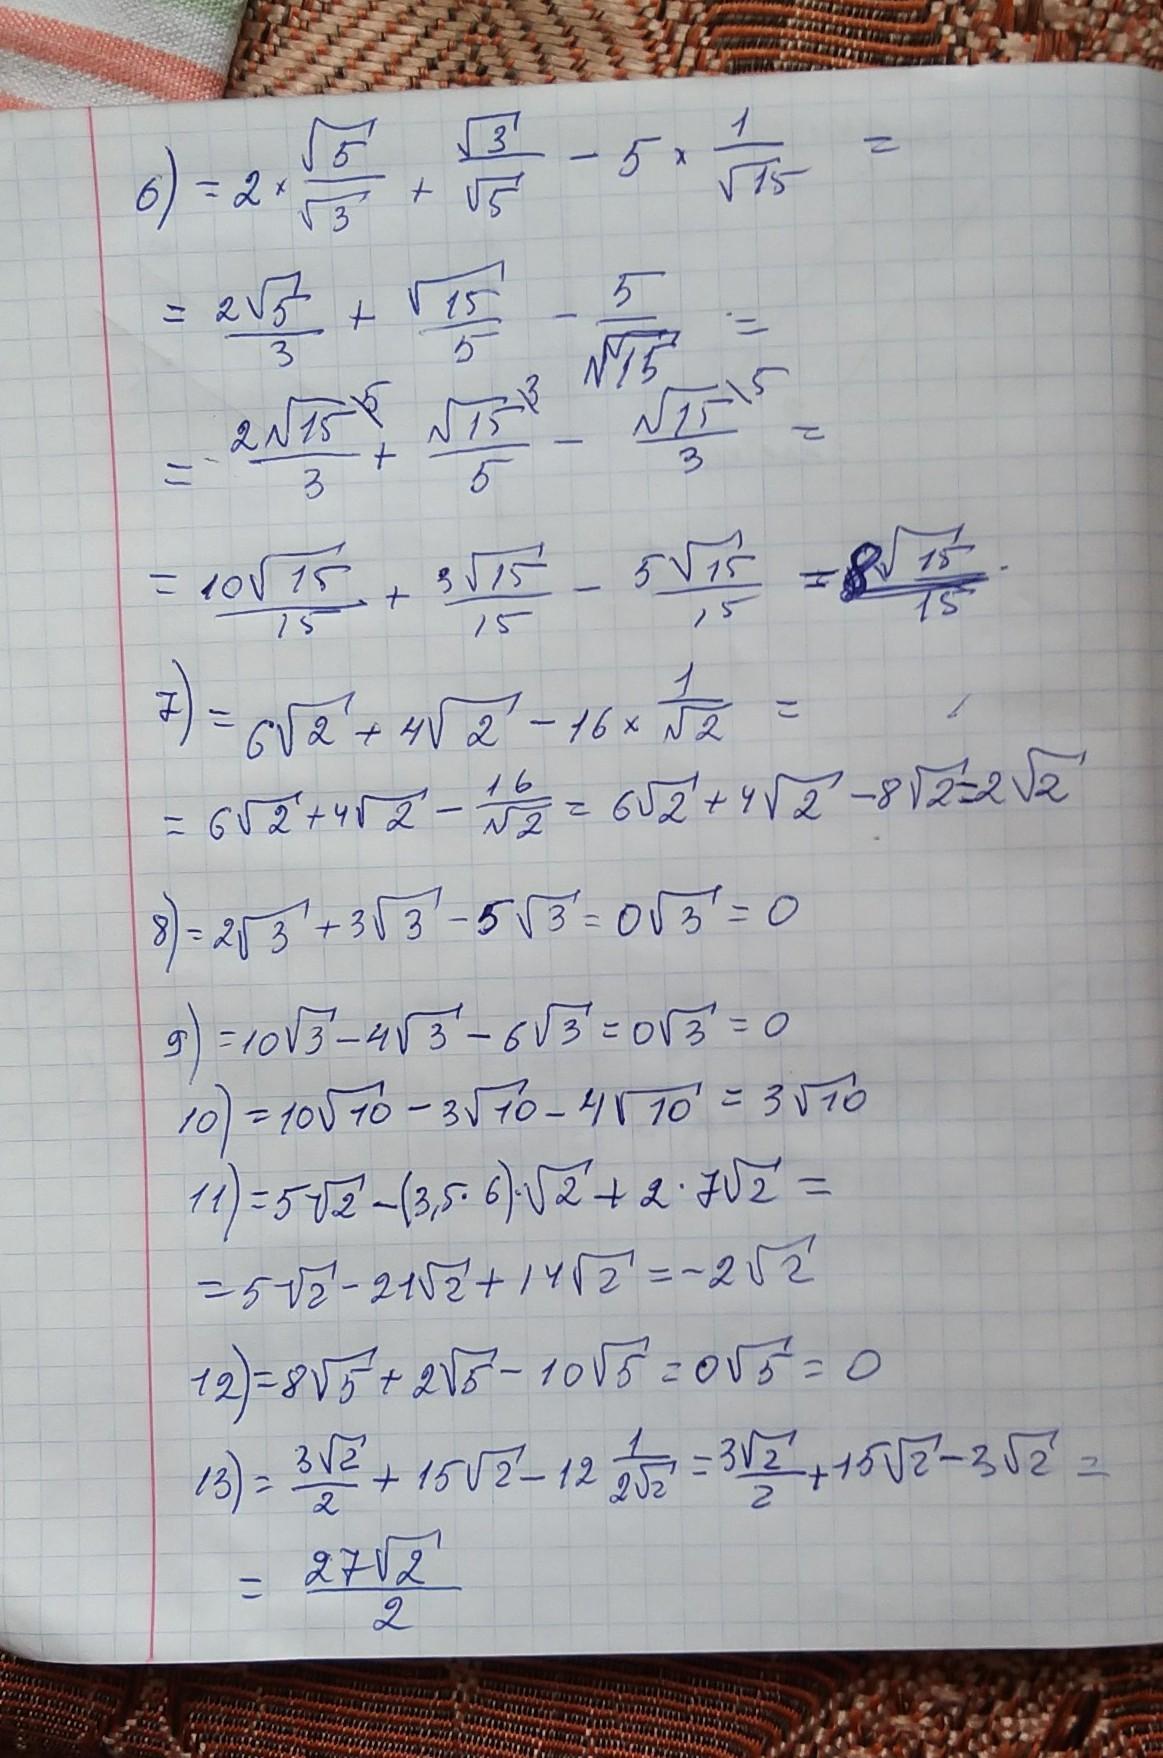 6) = 2 × √5/√3 + √3/√5 − 5 × 1/√15 =
= 2√5/3 + √15/5 − 5/√15 =
= 2√15\5/3 + √15\3/5 − √15\5/3 =
= 10√15/15 + 3√15/15 − 5√15/15 = 8√15/15.
7) = 6√2 + 4√2 − 16 × 1/√2 =
= 6√2 + 4√2 − 16/√2 = 6√2 + 4√2 − 8√2 = 2√2
8) = 2√3 + 3√3 − 5√3 = 0√3 = 0
9) = 10√3 − 4√3 − 6√3 = 0√3 = 0
10) = 10√10 − 3√10 − 4√10 = 3√10
11) = 5√2 − (3,5 · 6) · √2 + 2 · 7√2 =
= 5√2 − 21√2 + 14√2 = −2√2
12) = 8√5 + 2√5 − 10√5 = 0√5 = 0
13) = 3√2/2 + 15√2 − 12 1/2√2 = 3√2/2 + 15√2 − 3√2 =
= 27√2/2